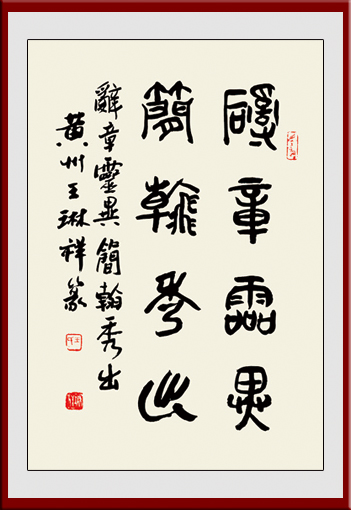 辭章靈異
簡翰秀出
辭章靈異簡翰秀出
黄州王琳祥篆